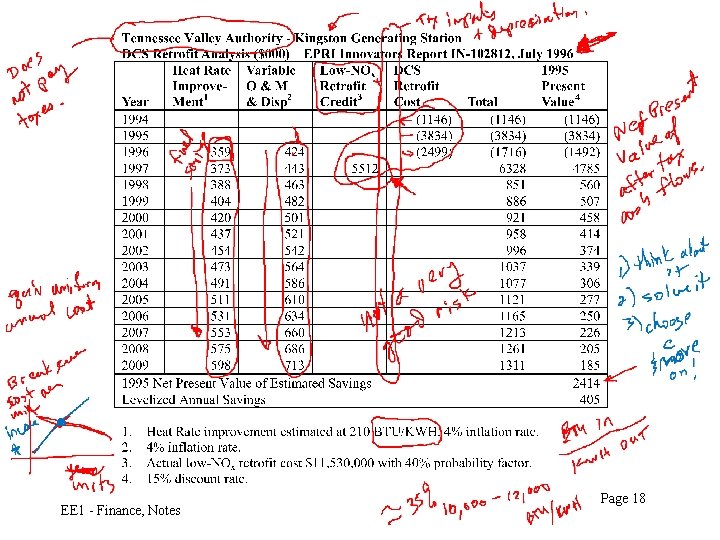 Tx impacts
+ depreciation.
Tennessee Valley Authority - Kingston Generating Station
DCS Retrofit Analysis ($000) EPRI Innovators Report IN-102812, July 1996
Does
not pay
taxes.
Year Heat Rate Improve-Ment1 Variable O & M & Disp2 Low-NOx Retrofit Credit3 DCS Retrofit Cost Total 1995 Present Value4
1994 (1146) (1146) (1146)
1995 (3834) (3834) (3834)
1996 359 424 (2499) (1716) (1492)
1997 373 443 5512 6328 4785
1998 388 463 851 560
1999 404 482 886 507
2000 420 501 921 458
2001 437 521 958 414
2002 454 542 996 374
2003 473 564 1037 339
2004 491 586 1077 306
2005 511 610 1121 277
2006 531 634 1165 250
2007 553 660 1213 226
2008 575 686 1261 205
2009 598 713 1311 185
1995 Net Present Value of Estimated Savings 2414
Levelized Annual Savings 405
Net Present
Value of
after tax
cash flows.
1) think about
it
2) solve it
3) choose
& move
on!
fuel
savings
Not a very
good risk
annual cost
Break even
units
1. Heat Rate improvement estimated at 210 BTU/KWH, 4% inflation rate.
2. 4% inflation rate.
3. Actual low-NOx retrofit cost $11,530,000 with 40% probability factor.
4. 15% discount rate.
BTU IN
KWH OUT
≈ 35% 10,000 - 12,000
BTU/KWH
EE1 - Finance, Notes
Page 18